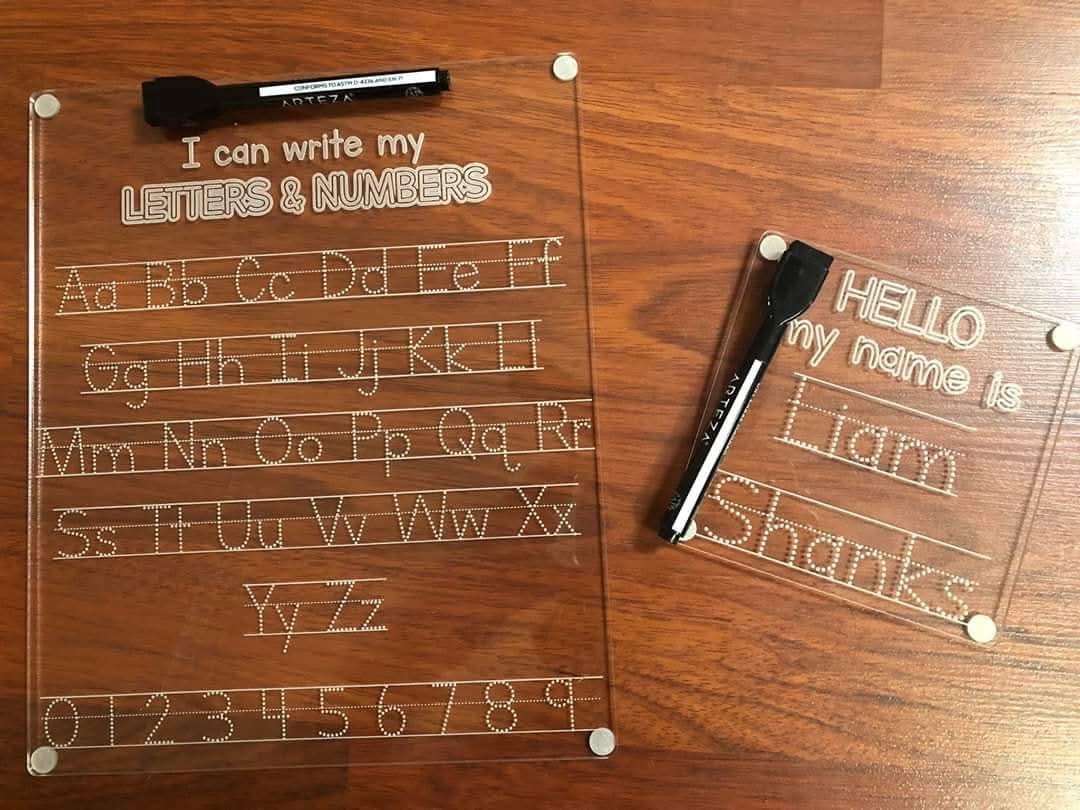 CONFORMS TO ASTM D-4236 AND EN 71
ARTEZA
I can write my
LETTERS & NUMBERS
Aa Bb Cc Dd Ee Ff
Gg Hh Ii Jj Kk Ll
Mm Nn Oo Pp Qq Rr
Ss Tt Uu Vv Ww Xx
Yy Zz
0 1 2 3 4 5 6 7 8 9
ARTEZA
HELLO
my name is
Liam
Shanks